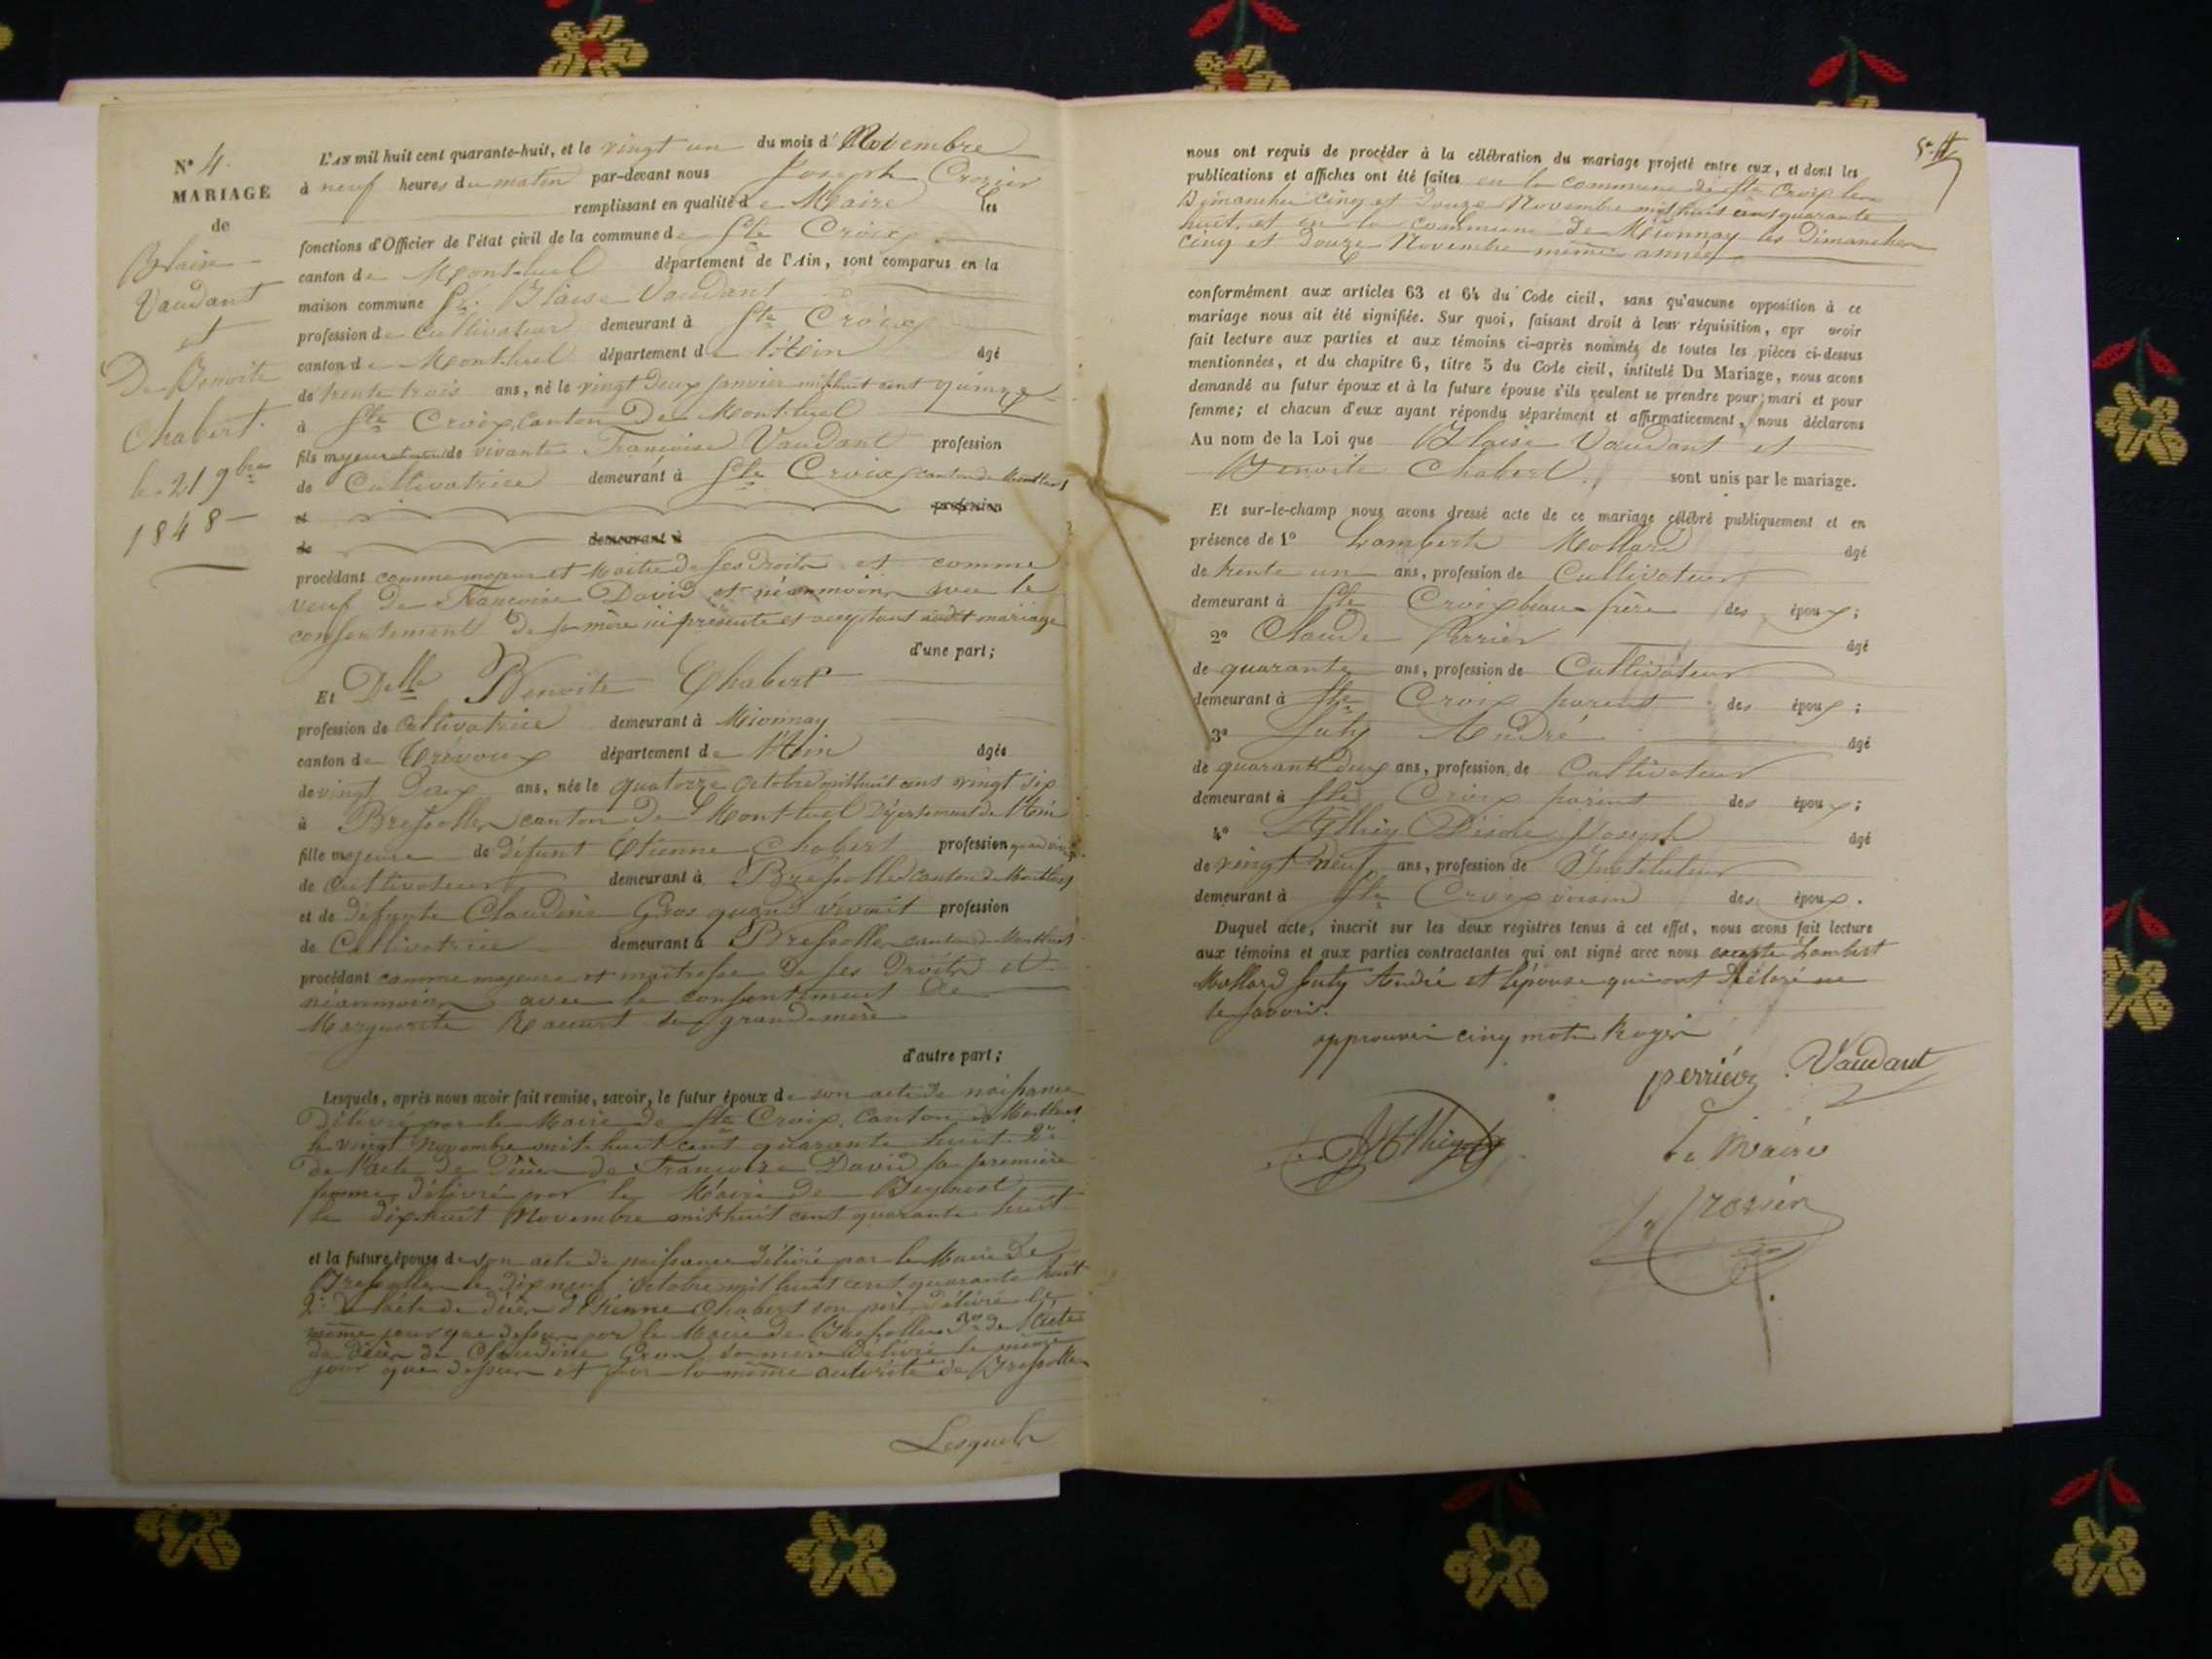 N° 4.
MARIAGE
de
Blaise
Vaudant
et
De Benoite
Chabert.
le 21 9bre
1848
L'AN mil huit cent quarante-huit, et le vingt un du mois d' Novembre
à neuf heures du matin par-devant nous Joseph Crozier
remplissant en qualité de Maire les
fonctions d'Officier de l'état civil de la commune de Ste Croix
canton de Montluel département de l'Ain, sont comparus en la
maison commune Sr. Blaise Vaudant
profession de Cultivateur demeurant à Ste Croix
canton de Montluel département de l'Ain âgé
de trente trois ans, né le vingt deux Janvier mil huit cent quinze
à Ste Croix, Canton De Montluel
fils majeur de vivante Françoise Vaudant profession
de Cultivatrice demeurant à Ste Croix canton de Montluel
et profession
de demeurant à
procédant comme majeur et Maitre de ses Droits et comme
veuf De Françoise David et néanmoins avec le
consentement De sa mère ici présente et acceptant ledit mariage
d'une part;
Et Delle Benoite Chabert
profession de Cultivatrice demeurant à Mionnay
canton de Trévoux département de l'Ain âgée
de vingt Deux ans, née le quatorze Octobre mil huit cent vingt six
à Bressolles canton De Montluel Département de l'Ain
fille majeure de défunt Etienne Chabert profession quand vivait
de Cultivateur demeurant à Bressolles canton de Montluel
et de défunte Claudine Gros quand vivait profession
de Cultivatrice demeurant à Bressolles canton de Montluel
procédant comme majeure et maitresse De ses Droits et
néanmoins avec le consentement De
Marguerite sa grand-mère
d'autre part;
Lesquels, après nous avoir fait remise, savoir, le futur époux de son acte de naissance
Délivré par le Maire de Ste Croix, Canton de Montluel
le vingt Novembre mil huit cent quarante huit 2°
de l'acte de Décès de Françoise David sa première
femme, délivré par le Maire de Beynost
le dix-huit Novembre mil huit cent quarante huit
et la future épouse de son acte de naissance délivré par le Maire De
Bressolles le Dix neuf Octobre mil huit cent quarante huit
2° De l'acte de décès d'Etienne Chabert son père délivré le
même jour que dessus par le Maire De Bressolles 3° de l'acte
de décès de Claudine Gros, sa mère délivré le même
jour que dessus et par la même autorité de Bressolles
Lesquels
nous ont requis de procéder à la célébration du mariage projeté entre eux, et dont les
publications et affiches ont été faites en la commune de Ste Croix les
Dimanches cinq et Douze Novembre mil huit cent quarante
huit et en la commune De Mionnay les Dimanches
cinq et Douze Novembre même année
conformément aux articles 63 et 64 du Code civil, sans qu'aucune opposition à ce
mariage nous ait été signifiée. Sur quoi, faisant droit à leur réquisition, apr avoir
fait lecture aux parties et aux témoins ci-après nommés de toutes les pièces ci-dessus
mentionnées, et du chapitre 6, titre 5 du Code civil, intitulé Du Mariage, nous avons
demandé au futur époux et à la future épouse s'ils veulent se prendre pour mari et pour
femme; et chacun d'eux ayant répondu séparément et affirmativement, nous déclarons
Au nom de la Loi que Blaise Vaudant et
Benoite Chabert. sont unis par le mariage.
Et sur-le-champ nous avons dressé acte de ce mariage célébré publiquement et en
présence de 1° Lambert Mollard âgé
de trente un ans, profession de Cultivateur
demeurant à Ste Croix beau-frère des époux;
2° Claude Perrier âgé
de quarante ans, profession de Cultivateur
demeurant à Ste Croix parent des époux;
3° Juty André âgé
de quarante deux ans, profession de Cultivateur
demeurant à Ste Croix parent des époux;
4° Joseph âgé
de vingt neuf ans, profession de Instituteur
demeurant à Ste Croix voisin des époux.
Duquel acte, inscrit sur les deux registres tenus à cet effet, nous avons fait lecture
aux témoins et aux parties contractantes qui ont signé avec nous excepté Lambert
Mollard Juty André et l'épouse qui ont déclaré ne
le savoir.
approuvés cinq mots Rayés
perrier Vaudant
Le Maire
Crozier